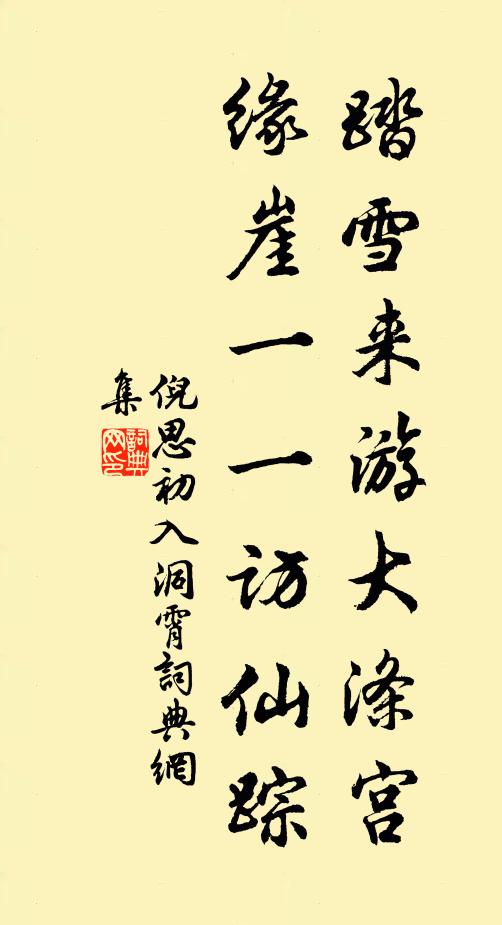 踏雪来游大涤宫
缘崖一一访仙踪
倪思初入洞霄詞典網
集
詞典
网印